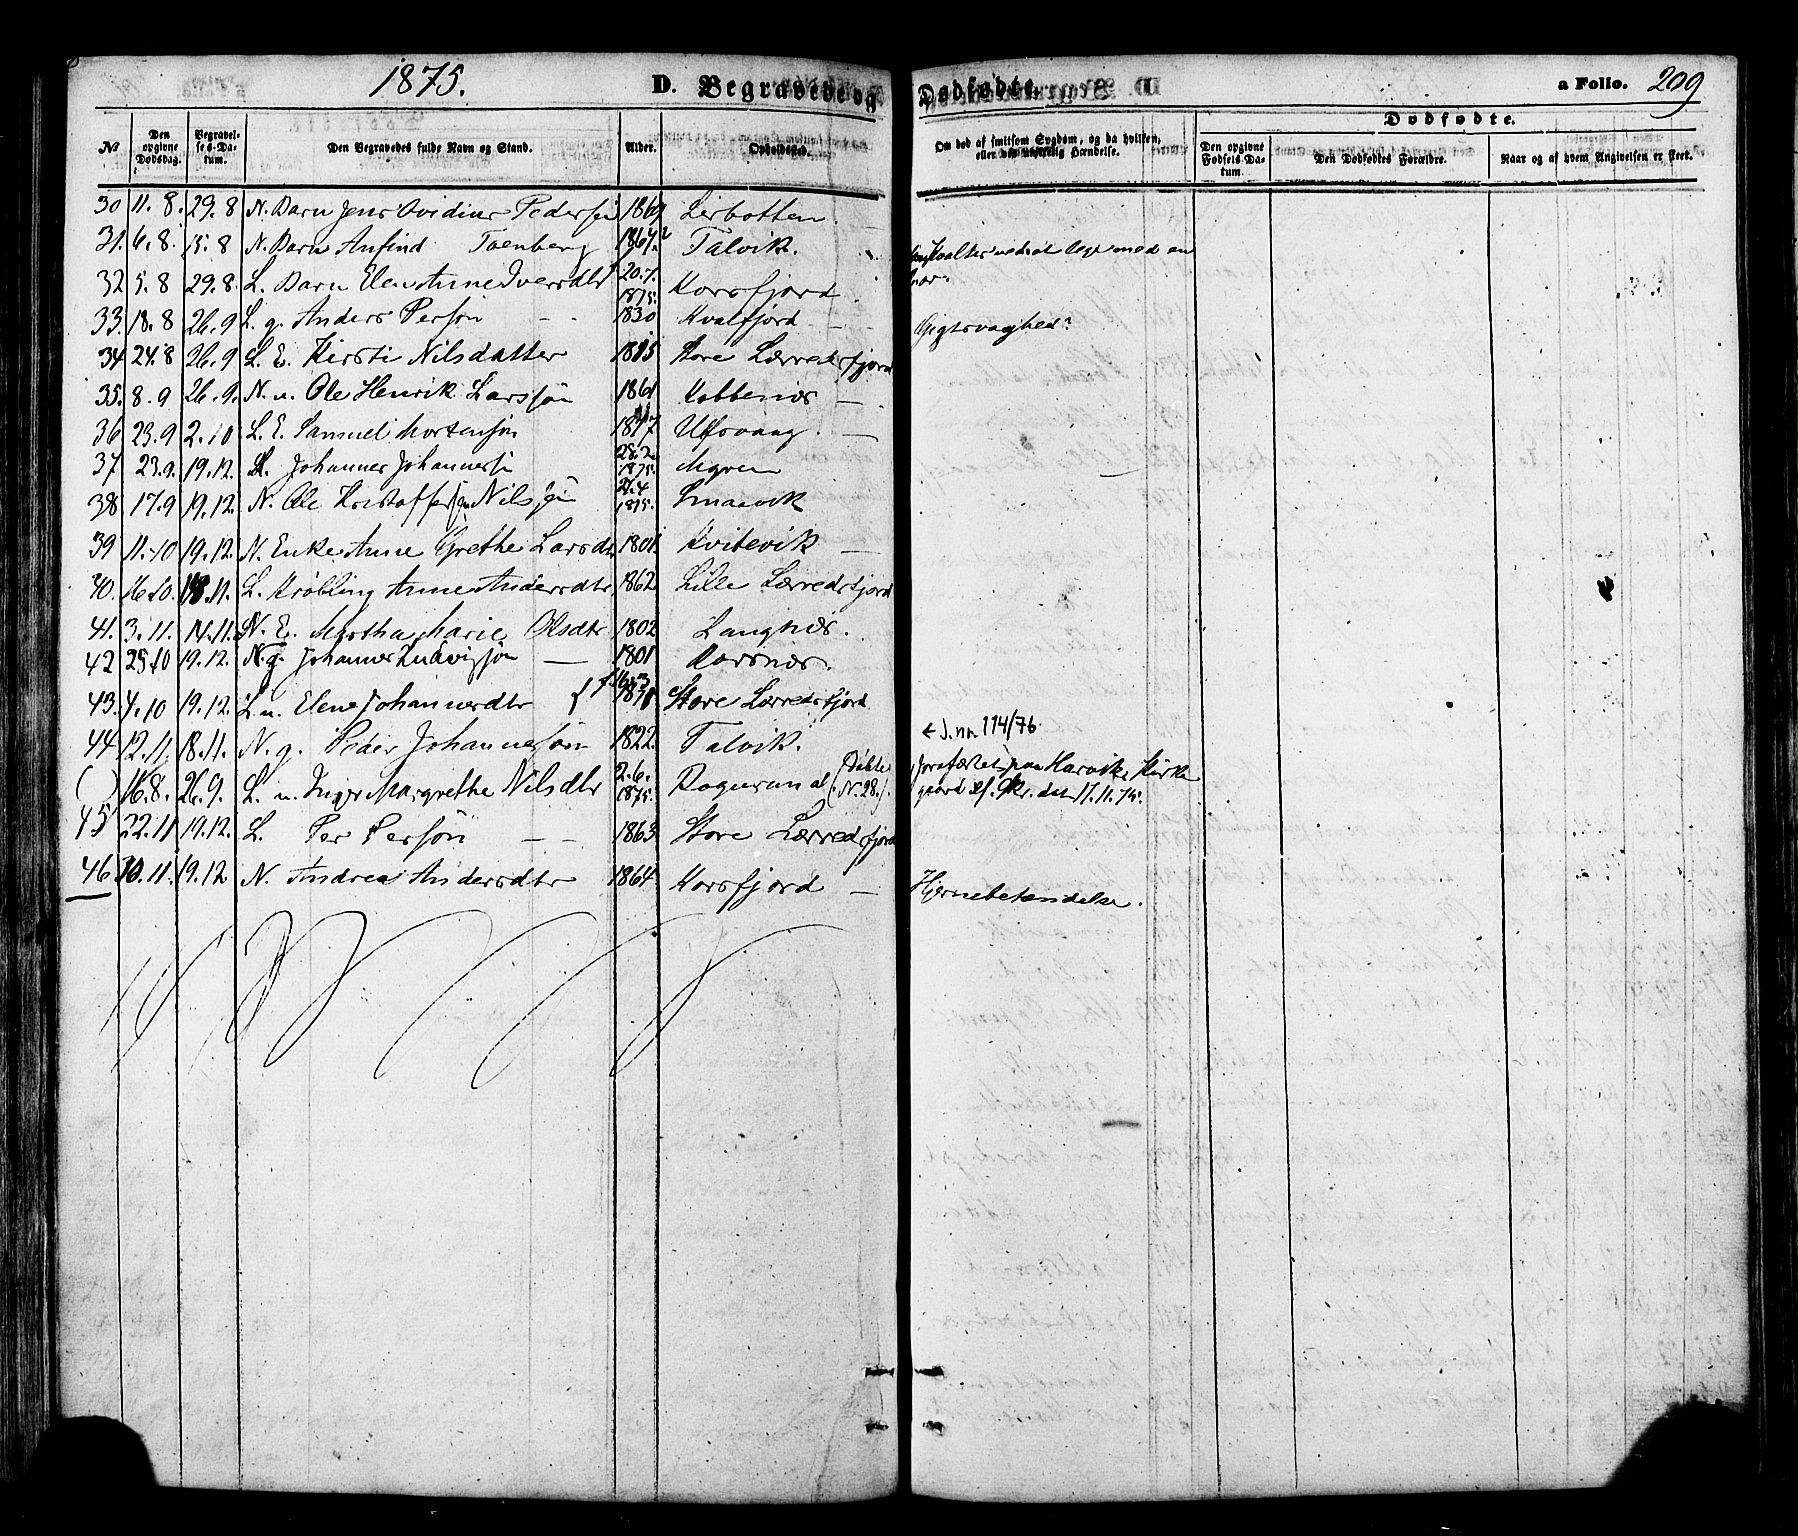 1875. D. Begravede og Dødfødte. a Folio. 209
No Den opgivne Dødsdag. Begravelses-Datum. Den Begravedes fulde Navn og Stand. Alder. Opholdssted. Om død af smitsom Sygdom, og da hvilken, eller Hændelse. Dødfødte.
Den opgivne Fødsels-Datum. Den Dødfødtes Forældre. Naar og af hvem Angivelsen er skeet.
30 11.8. 29.8 N. Barn Jens Ovidius Pedersen 1869 Lerbotten.
31. 6.8. 15.8 N. Barn Anfind Toenberg 1864 Talvik. ved at lege med en
32 5.8 29.8. L. Barn Elen Anne Iversdtr 20.7. 1875. Korsfjord.
33. 18.8 26.9 L. g. Anders Persøn - - 1830 Kvalfjord - - Gigtsvaghed?
34 24.8 26.9 L. E. Kirsti Nilsdatter 1815 Store Lærredsfjord
35. 8.9 26.9. N. u. Ole Henrik Larssøn 1861 Kobbenæs —
36 23.9 2.10 L. E. Samuel Mortensøn Ufsvaag. —
37 23.9. 19.12. L. Johannes Johannes 28.2 1875. Mgren
38 17.9 19.12. N. Ole Kristoffer Nilsøn 27.4 1875. Smaavik
39 11.10 19.12. N. Enke Anne Grethe Larsdtr 1801. Kvitevik —
40. 16.10. 11. L. Krøbling Anne Andersdtr 1862 Lille Lærredsfjord
41. 3.11. 14.11. N. E. Martha Marie Olsdtr 1802 Langnes.
42 25.10 19.12. N. g. Johannes Ludvigsøn — 1801 Korsnæs.
43. 4.10 19.12. L. u. Elene Johannesdtr Store Lærredsfjord
44 12.11 18.11. N. g. Peder Johannesøn 1822. Talvik. ← J. nr. 114/76
( ) 16.8. 26.9. L. u. Inger Margrethe Nilsdtr 2.6. 1875. Rognsund (Døbte N. 28.). Jordfæstet paa Harvik Kirke
gaard 17.11.75.
45 22.11 19.12. L. Per Persøn - - 1863 Store Lærredsfjord
46 30.11. 19.12 N. Andrea Andersdtr 1864 Korsfjord — Hjernebetændelse.